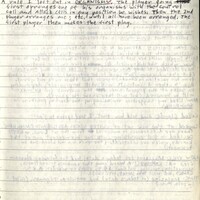 A rule I left out in ORGANISMS: The player going
first arranges one of his organisms with the control
cell and attack cells in any position he wishes. Then the 2nd
player arranges one; etc., until all have been arranged. The
first player then makes the first play.